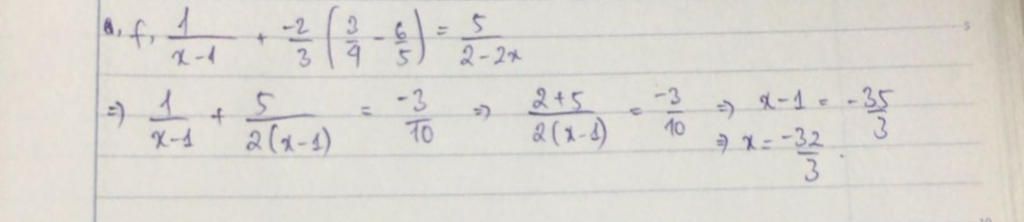 f, 1/(x-1) + -2/3 (3/4 - 6/5) = 5/(2-2x)
=) 1/(x-1) + 5/(2(x-1)) = -3/10 =) (2+5)/(2(x-1)) = -3/10 =) x-1 = -35/3
=) x = -32/3.